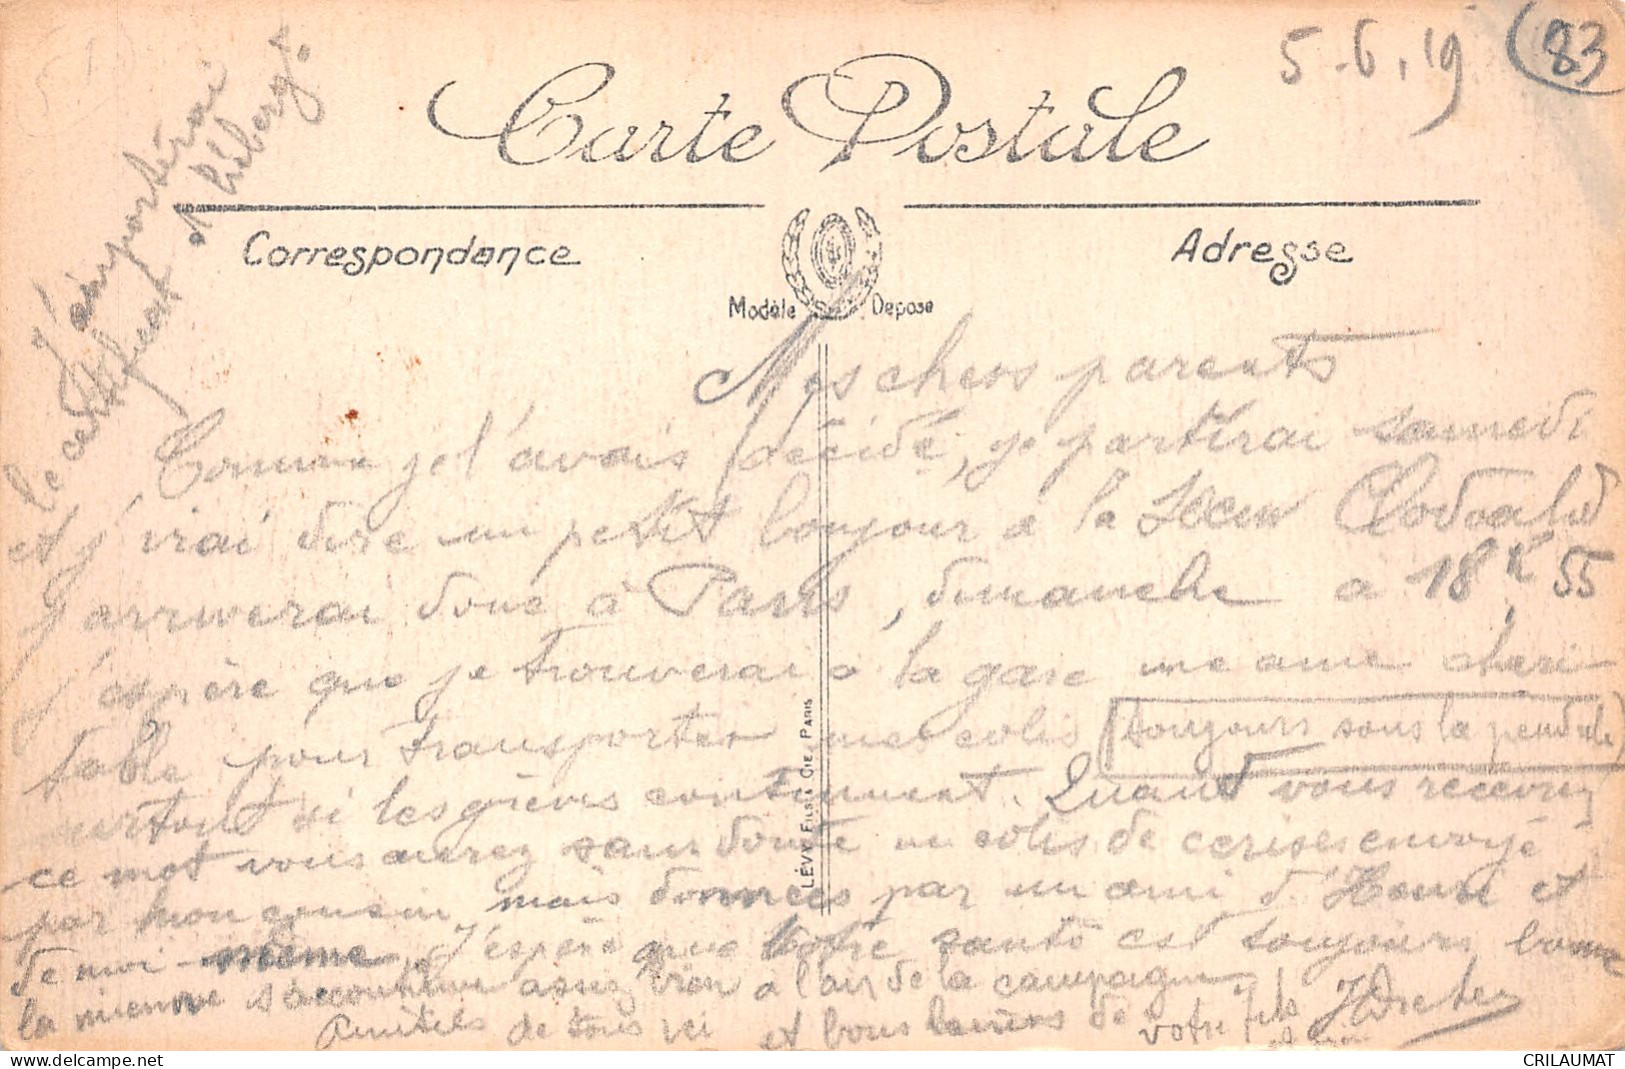 5-6-19 83
Carte Postale
Correspondance
Adresse
Modèle Déposé
LÉVY FILS & CIE PARIS
J'emporterai
le certificat d'héberg t.
Mes chers parents
Comme je l'avais décidé, je partirai samedi
et j'irai dire un petit bonjour à la Clodoald
j'arriverai donc à Paris, dimanche a 18 h 55
j'espère que je trouverai à la gare une ame cheri
table pour transporter mes colis (toujours sous la pendule)
surtout si les grèves continuent. Quand vous recevrez
ce mot vous aurez sans doute un colis de cerises envoyé
par mon cousin, mais données par un ami d'Henri et
de moi-même. J'espère que votre santé est toujours bonne
la mienne s'accoutume assez bien à l'air de la campagne
Amitiés de tous ici et bons baisers de votre fils
CRILAUMAT
www.delcampe.net